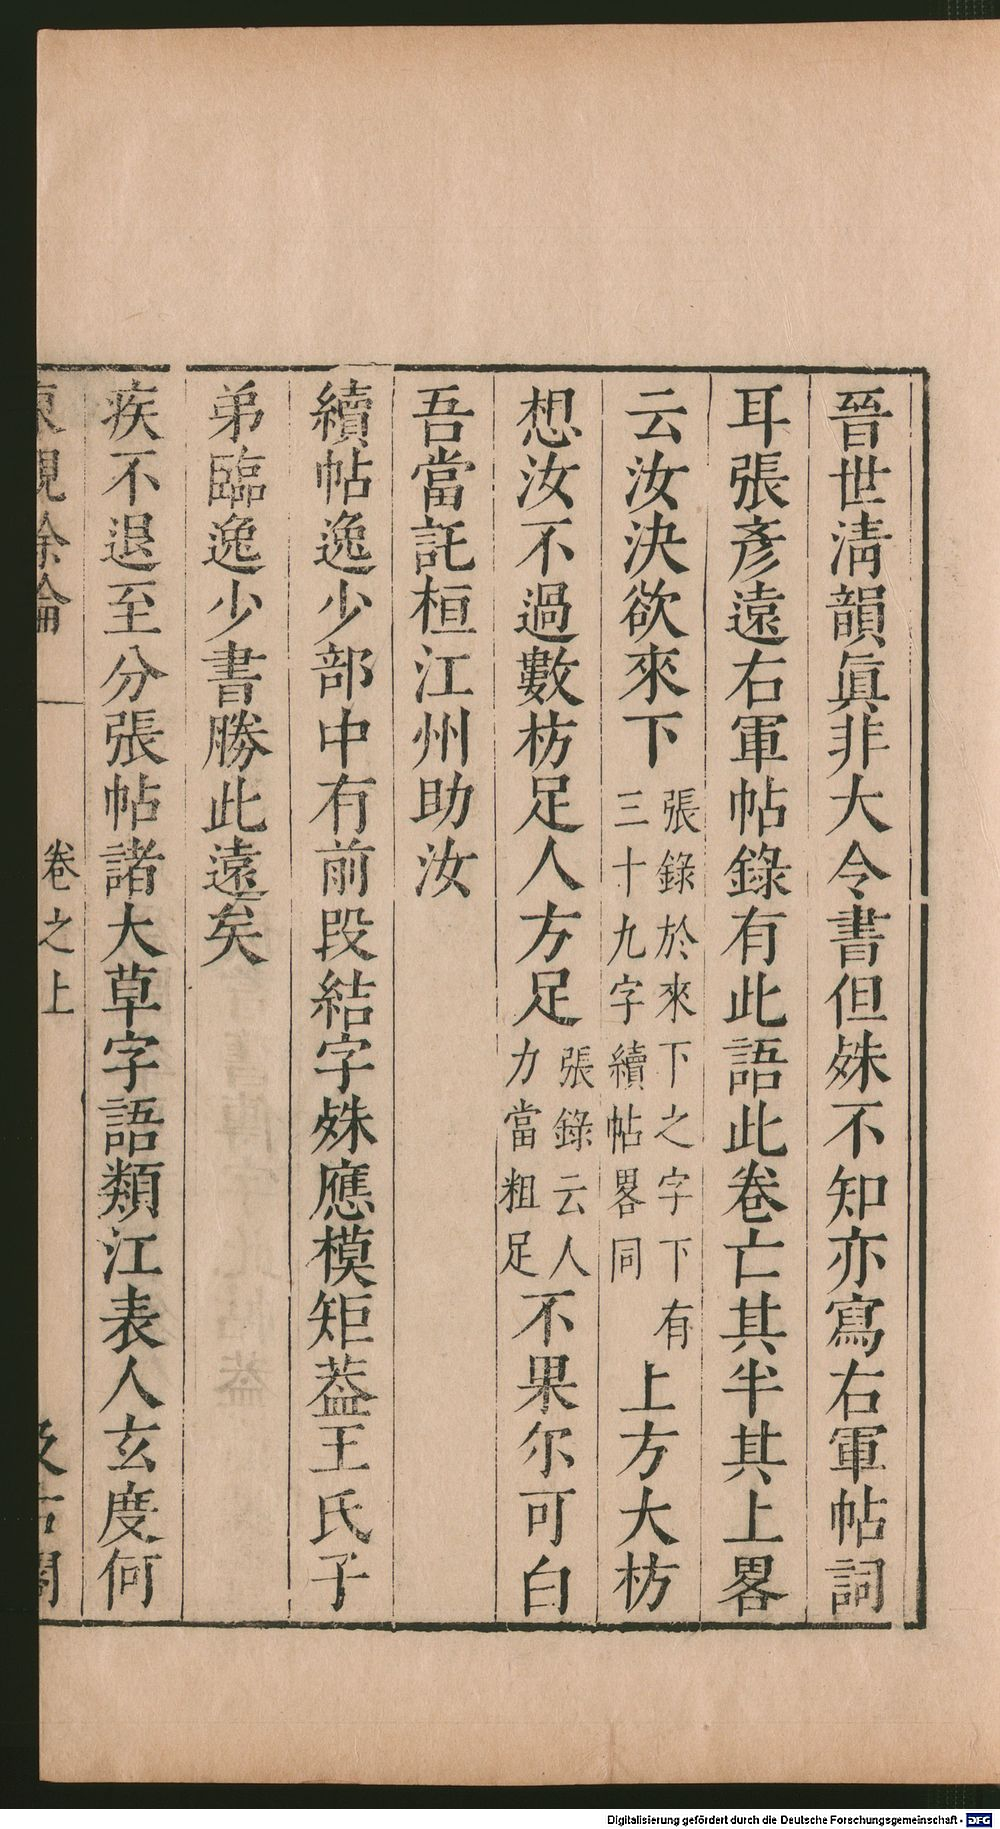 晉世淸韻眞非大令書但姝不知亦寫右軍帖詞
耳張彥遠右軍帖錄有此語此卷亡其半其上畧
云汝決欲來下張錄於來下之字下有三十九字續帖畧同上方大枋
想汝不過數枋足人方足張錄云人力當粗足不果尔可白
吾當託桓江州助汝
續帖逸少部中有前段結字姝應模矩葢王氏子
弟臨逸少書勝此遠矣
疾不退至分張帖諸大草字語類江表人玄度何
東觀餘論 卷之上 汲古閣
Digitalisierung gefördert durch die Deutsche Forschungsgemeinschaft - DFG